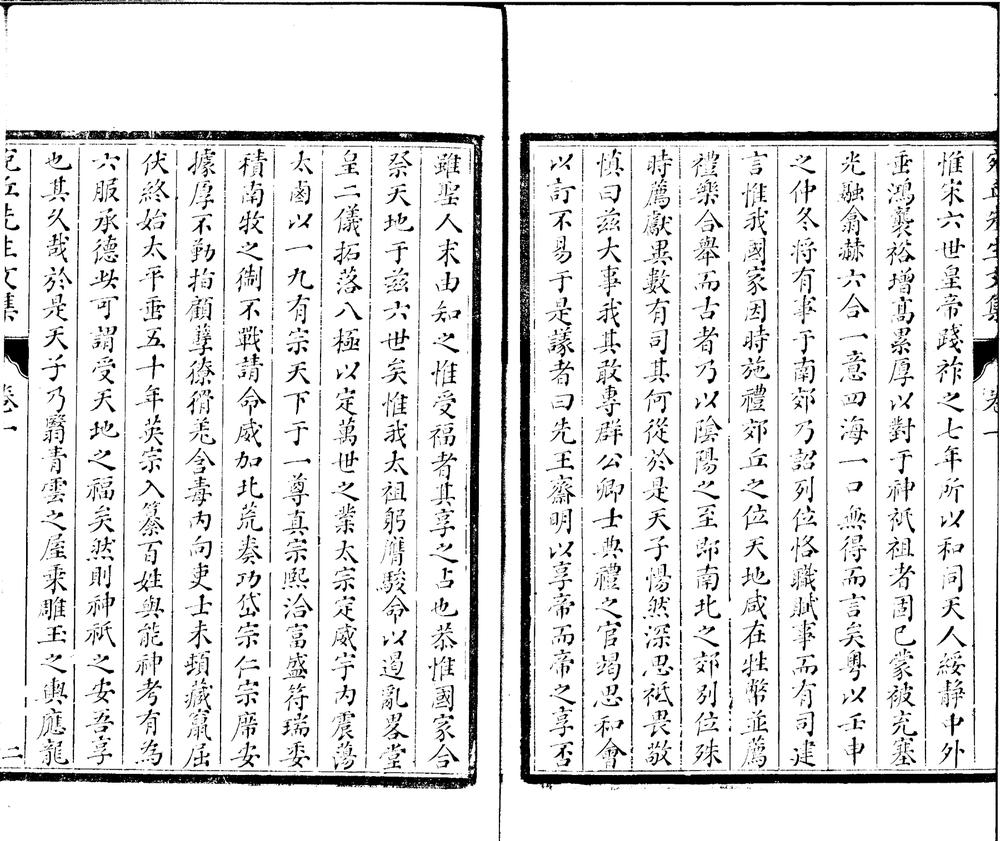 宛丘先生文集　卷一
惟宋六世皇帝踐祚之七年所以和同天人綏靜中外
垂鴻襲裕增髙累厚以對于神祇祖者固已蒙被充塞
光融翕赫六合一意四海一口無得而言矣粤以壬申
之仲冬将有事于南郊乃詔列位恪職賦事而有司建
言惟我國家因時施禮郊丘之位天地咸在牲幣並薦
禮樂合舉而古者乃以隂陽之至即南北之郊別位殊
時薦獻異數有司其何從於是天子惕然深思祗畏敬
慎曰兹大事我其敢專群公卿士典禮之官竭思和會
以訂不易于是議者曰先王齋明以享帝而帝之享否
雖聖人末由知之惟受福者其享之占也恭惟國家合
祭天地于兹六世矣惟我太祖躬膺駿命以遏亂畧堂
皇二儀拓落八極以定萬世之業太宗定威宇内震蕩
太鹵以一九有宗天下于一尊真宗熙洽富盛符瑞委
積南牧之御不戰請命威加北荒奏功岱宗仁宗席安
據厚不勤指顧孽獠猾羌含毒内向吏士未頓藏窟屈
伏終始太平垂五十年英宗入纂百姓與能神考有為
六服承德此可謂受天地之福矣然則神祇之安吾享
也其久哉於是天子乃翳青雲之屋乘雕玉之輿應龍
宛丘先生文集　卷一　二